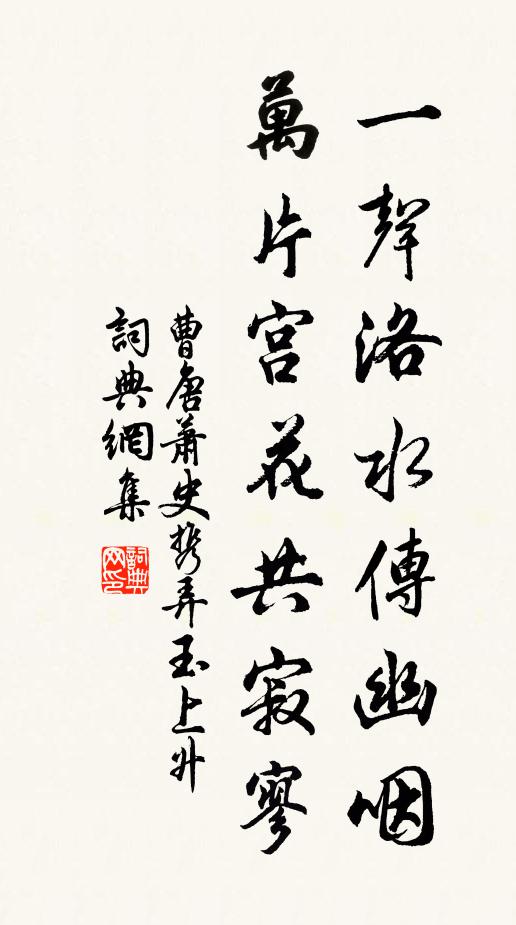 一聲洛水傳幽咽
萬片宮花共寂寥
曹唐蕭史攜弄玉上升
詞典網集
詞典网印